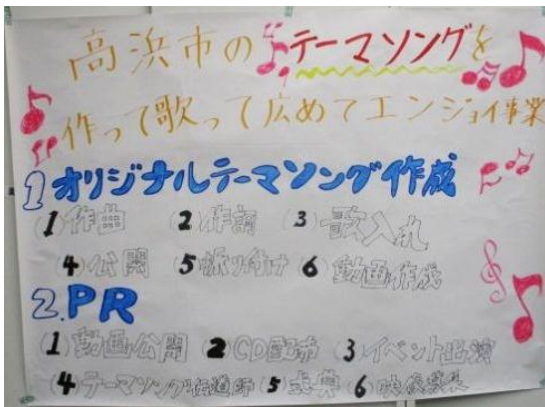 高浜市のテーマソングを
作って歌って広めてエンジョイ事業
1 オリジナルテーマソング作成
(1)作曲 (2)作詞 (3)歌入れ
(4)公開 (5)振り付け (6)動画作成
2.PR
(1)動画公開 (2)CD配布 (3)イベント出演
(4)テーマソング伝道師 (5) (6)